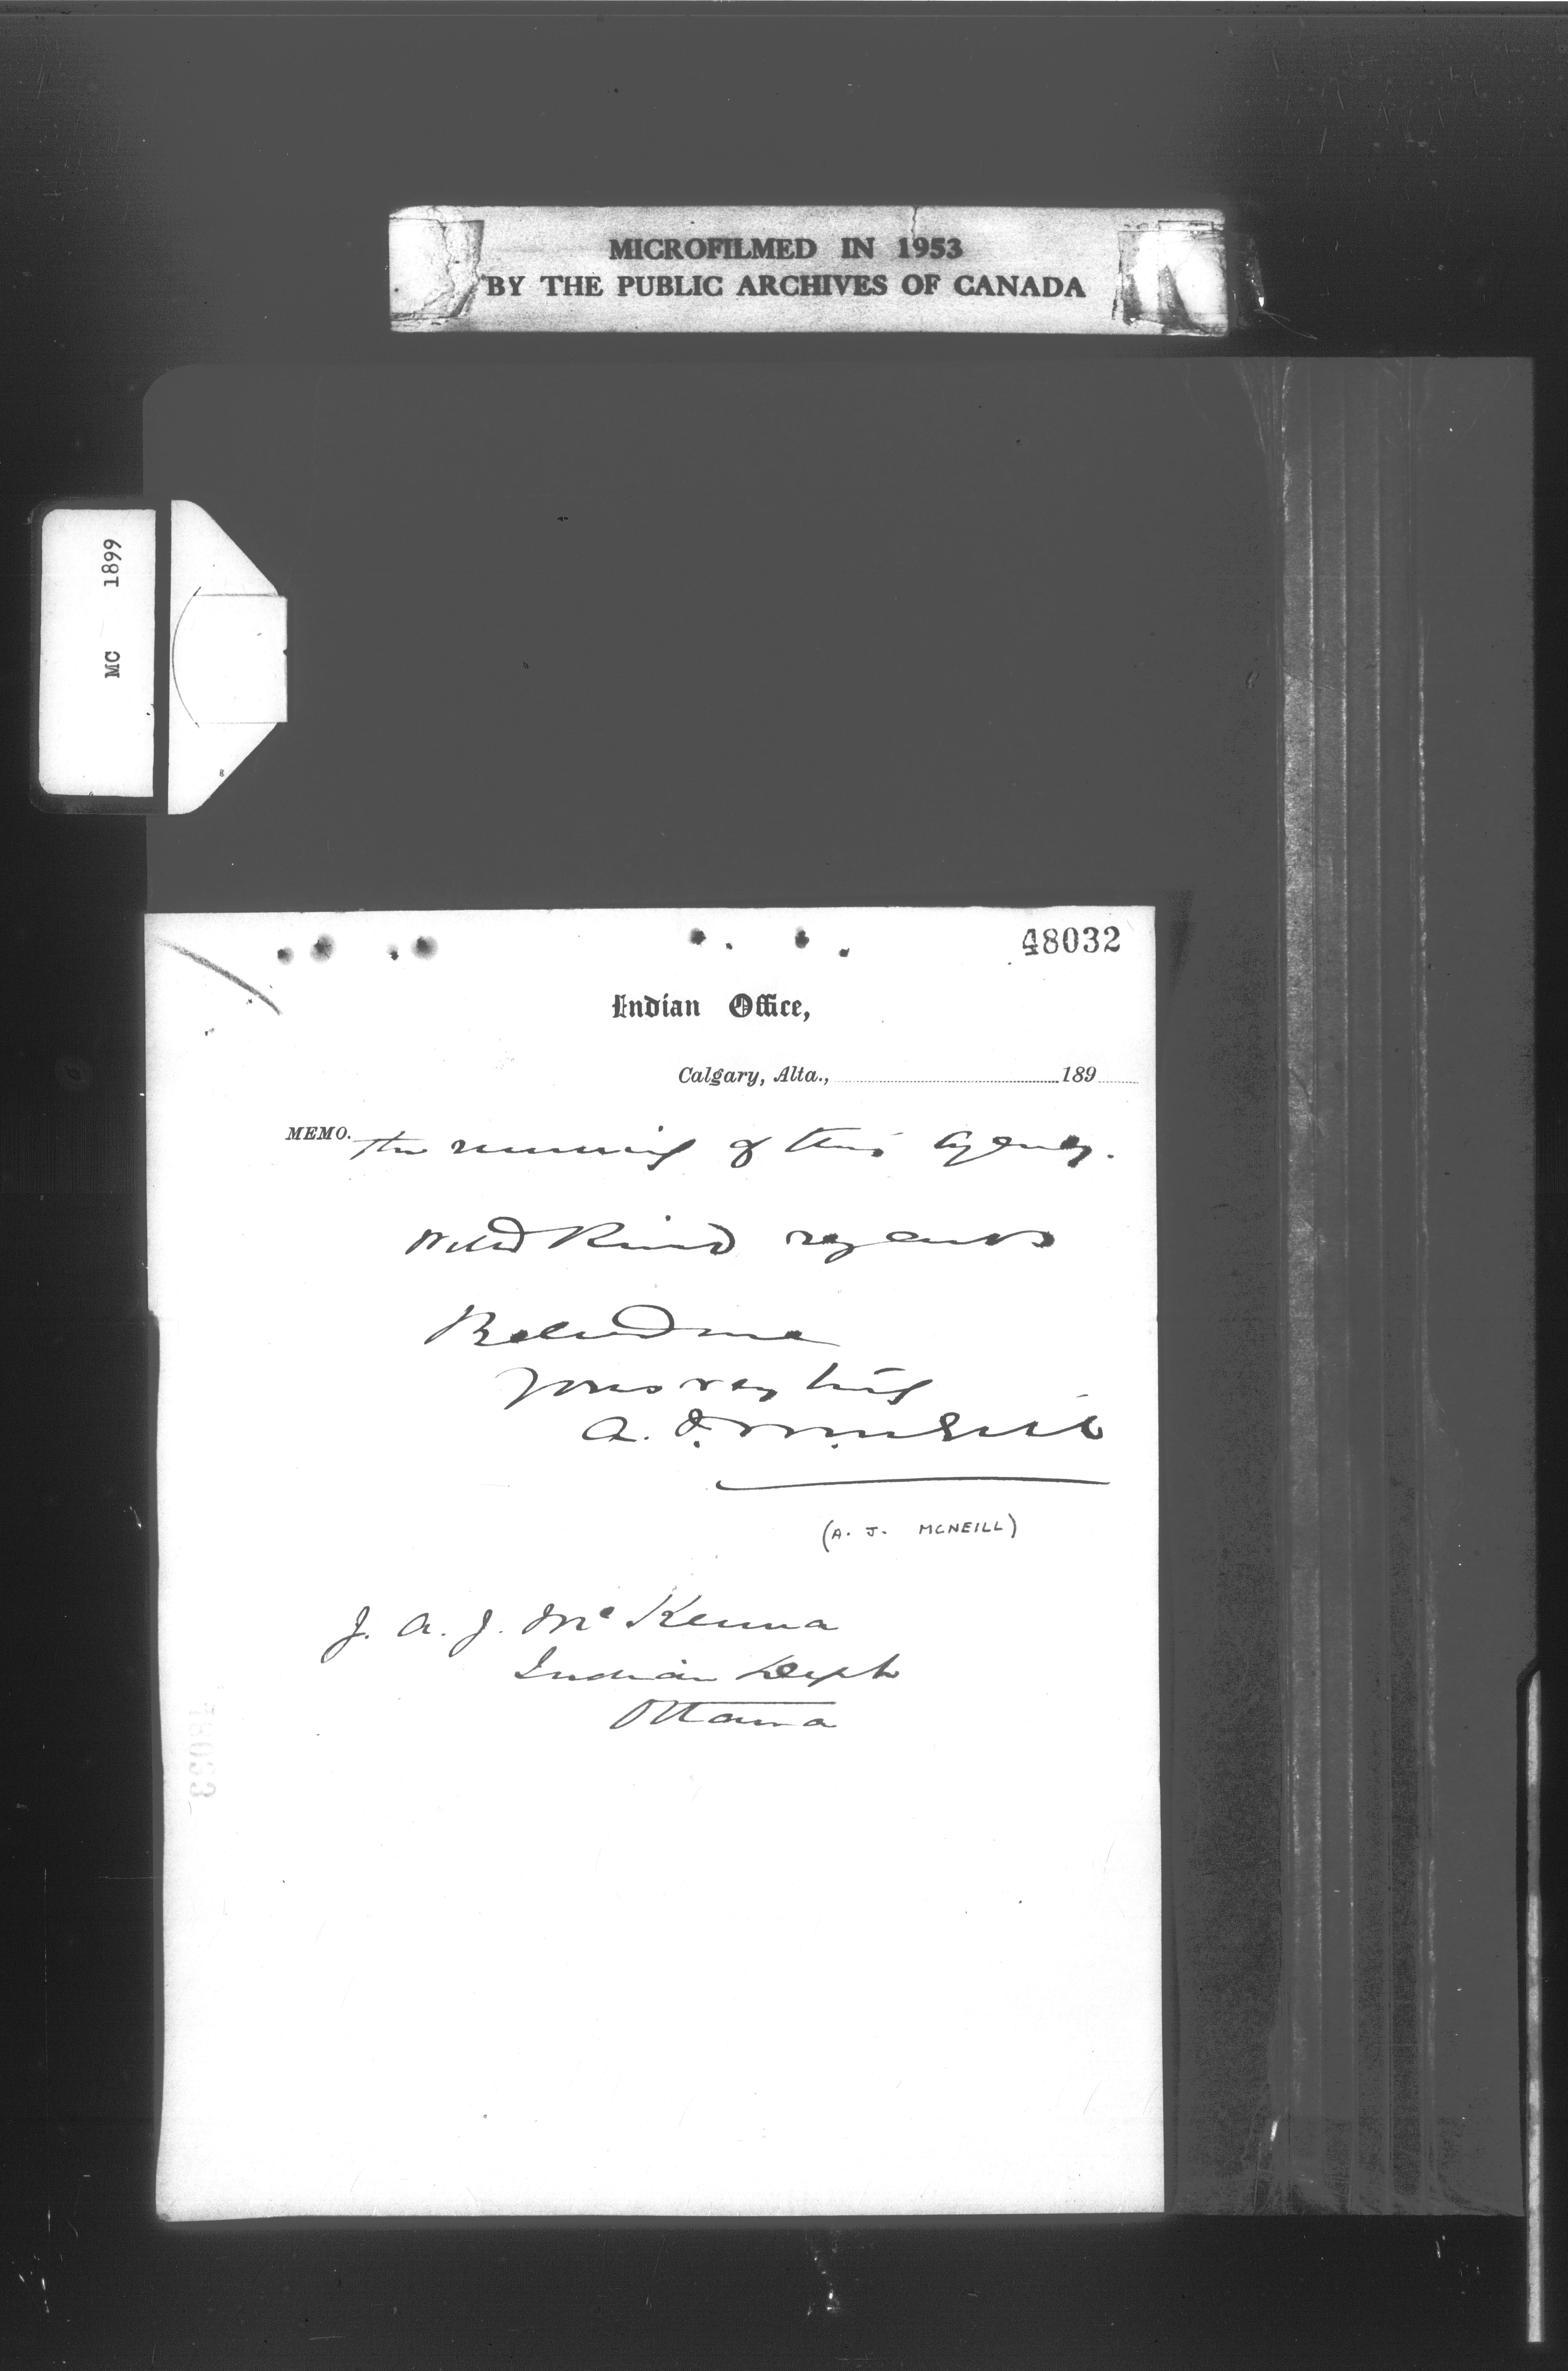 MICROFILMED IN 1953
BY THE PUBLIC ARCHIVES OF CANADA
MC 1899
48032
Indian Office,
Calgary, Alta., 189
MEMO. the running of this Agency.
With Kind regards
Believe me
Yours very truly
A. J. McNeill
(A. J. MCNEILL)
J. A. J. McKenna
Indian Dept
Ottawa